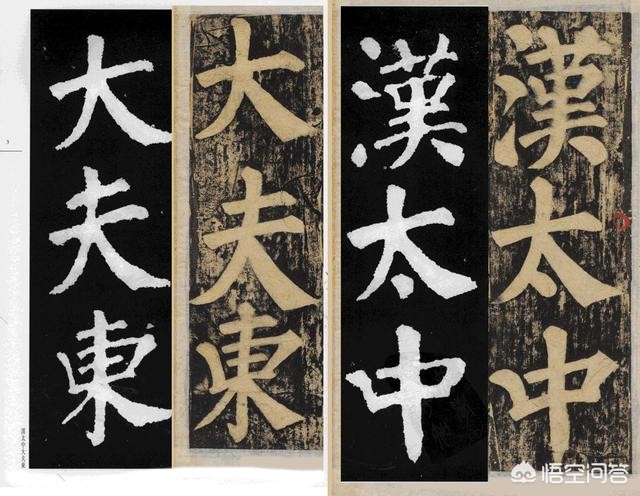 漢太中
漢太中
大夫東
大夫東
漢太中大夫東
3
悟空问答